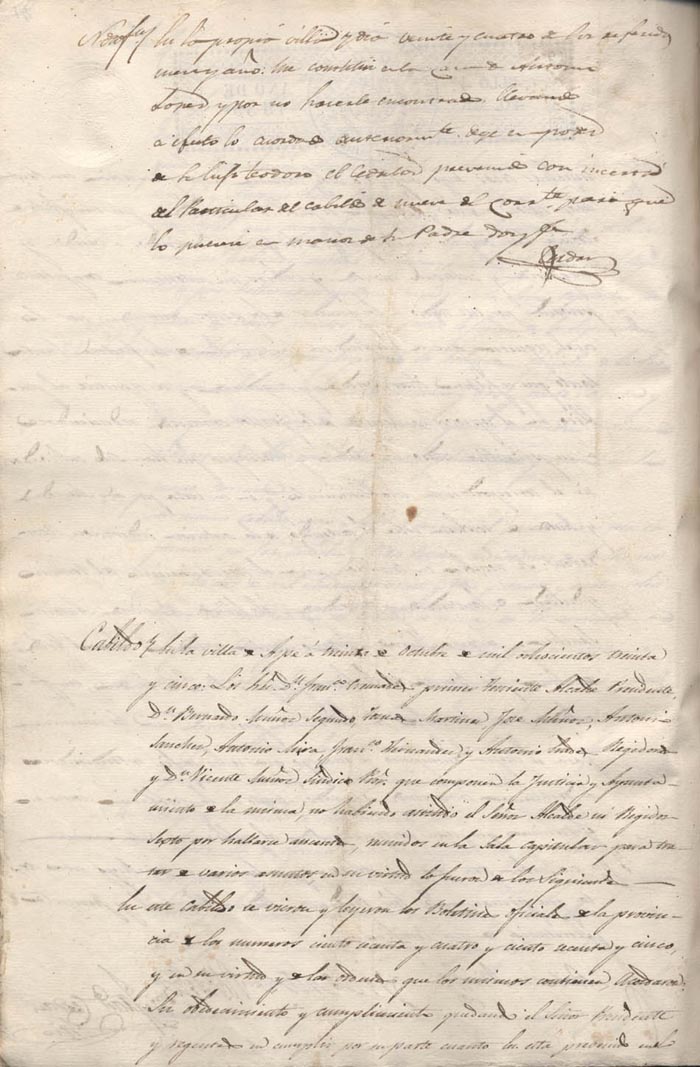 En la propia villa y dia veinte y cuatro de los referidos
mes y año: me constituí en la casa de Antonio
Lopez y por no haverle encontrado llevando
a efecto lo acordado anteriormte. deje en poder
de su hijo Teodoro el Cedulon prevenido con insercion
del Particular del cabildo de nueve del corrte. para que
lo pusiere en manos de su Padre doy fe
Cabildo En la villa de Aspe á treinta de Octubre de mil ochocientos treinta
y cinco: Los Sres. Dn. Franco. primer Teniente Alcalde Presidente,
Dn. Bernardo Muñoz Segundo, Martinez Jose Muñoz, Antonio
Sanchez, Antonio Mira, Franco. Hernandez, y Antonio Regidores
y Dn. Vicente Muñoz Sindico Pror. que componen la Justicia y Ayunta-
miento de la misma, no habiendo asistido el Señor Alcalde ni Regidor
Septo por hallarse ausentes, reunidos en la Sala capitular para tra-
tar de varios asuntos en su virtud lo fueron de los Siguientes
En este Cabildo se vieron y leyeron los Boletines oficiales de la provin-
cia de los numeros ciento y cuatro y ciento y cinco,
y en su virtud y de las ordenes que los mismos contienen Acordaron:
Su obedecimiento y cumplimiento quedando el Señor Presidente
y regentes en cumplir por su parte cuanto les esta prevenido en el